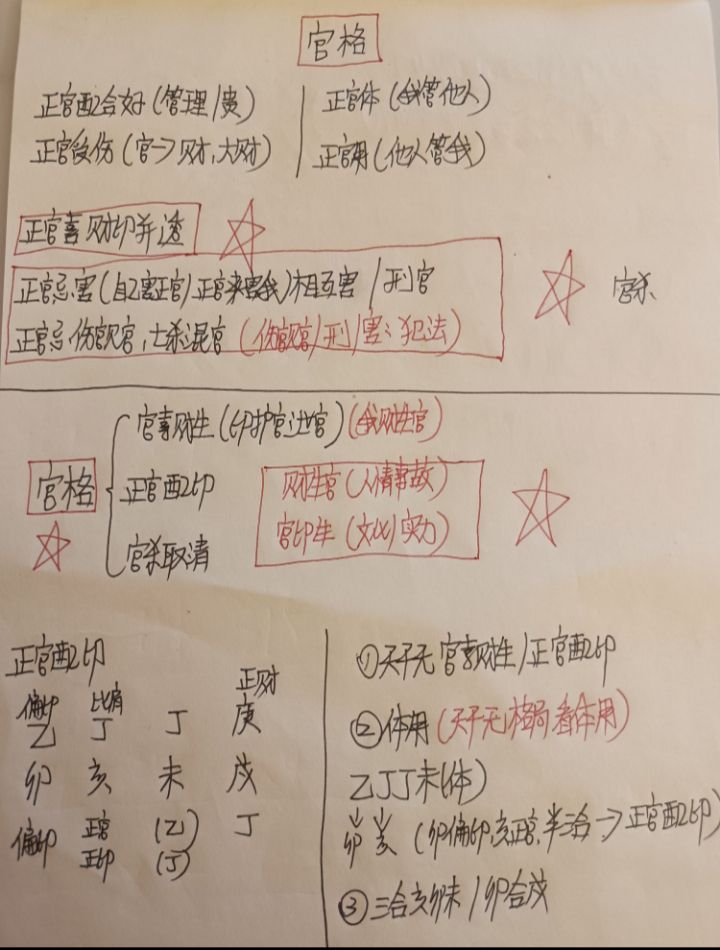 官格
正官配合好(管理/贵)
正官受伤(官→财,大财)
正官体(我管他人)
正官用(他人管我)
正官喜财印并透
正官忌害(自己害正官/正官来害我)相互害/刑官
正官忌伤官见官,七杀混官(伤官见官/刑/害:犯法)
官杀
官格
官喜财生(印护官过官)(我财生官)
正官配印
官杀取清
财生官(人情事故)
官印生(文化/实力)
正官配印
正财
偏印 比肩
乙 丁 丁 庚
卯 亥 未 戌
偏印 正官 (乙) 丁
正印 (丁)
①天干无官喜财生/正官配印
②体用(天干无格局看体用)
乙丁丁未(体)
卯 亥 (卯偏印,亥正官,半合→正官配印)
③三合亥卯未/卯合戌